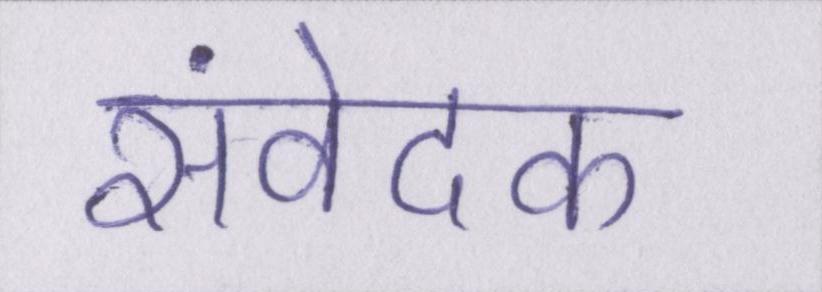 संवेदक